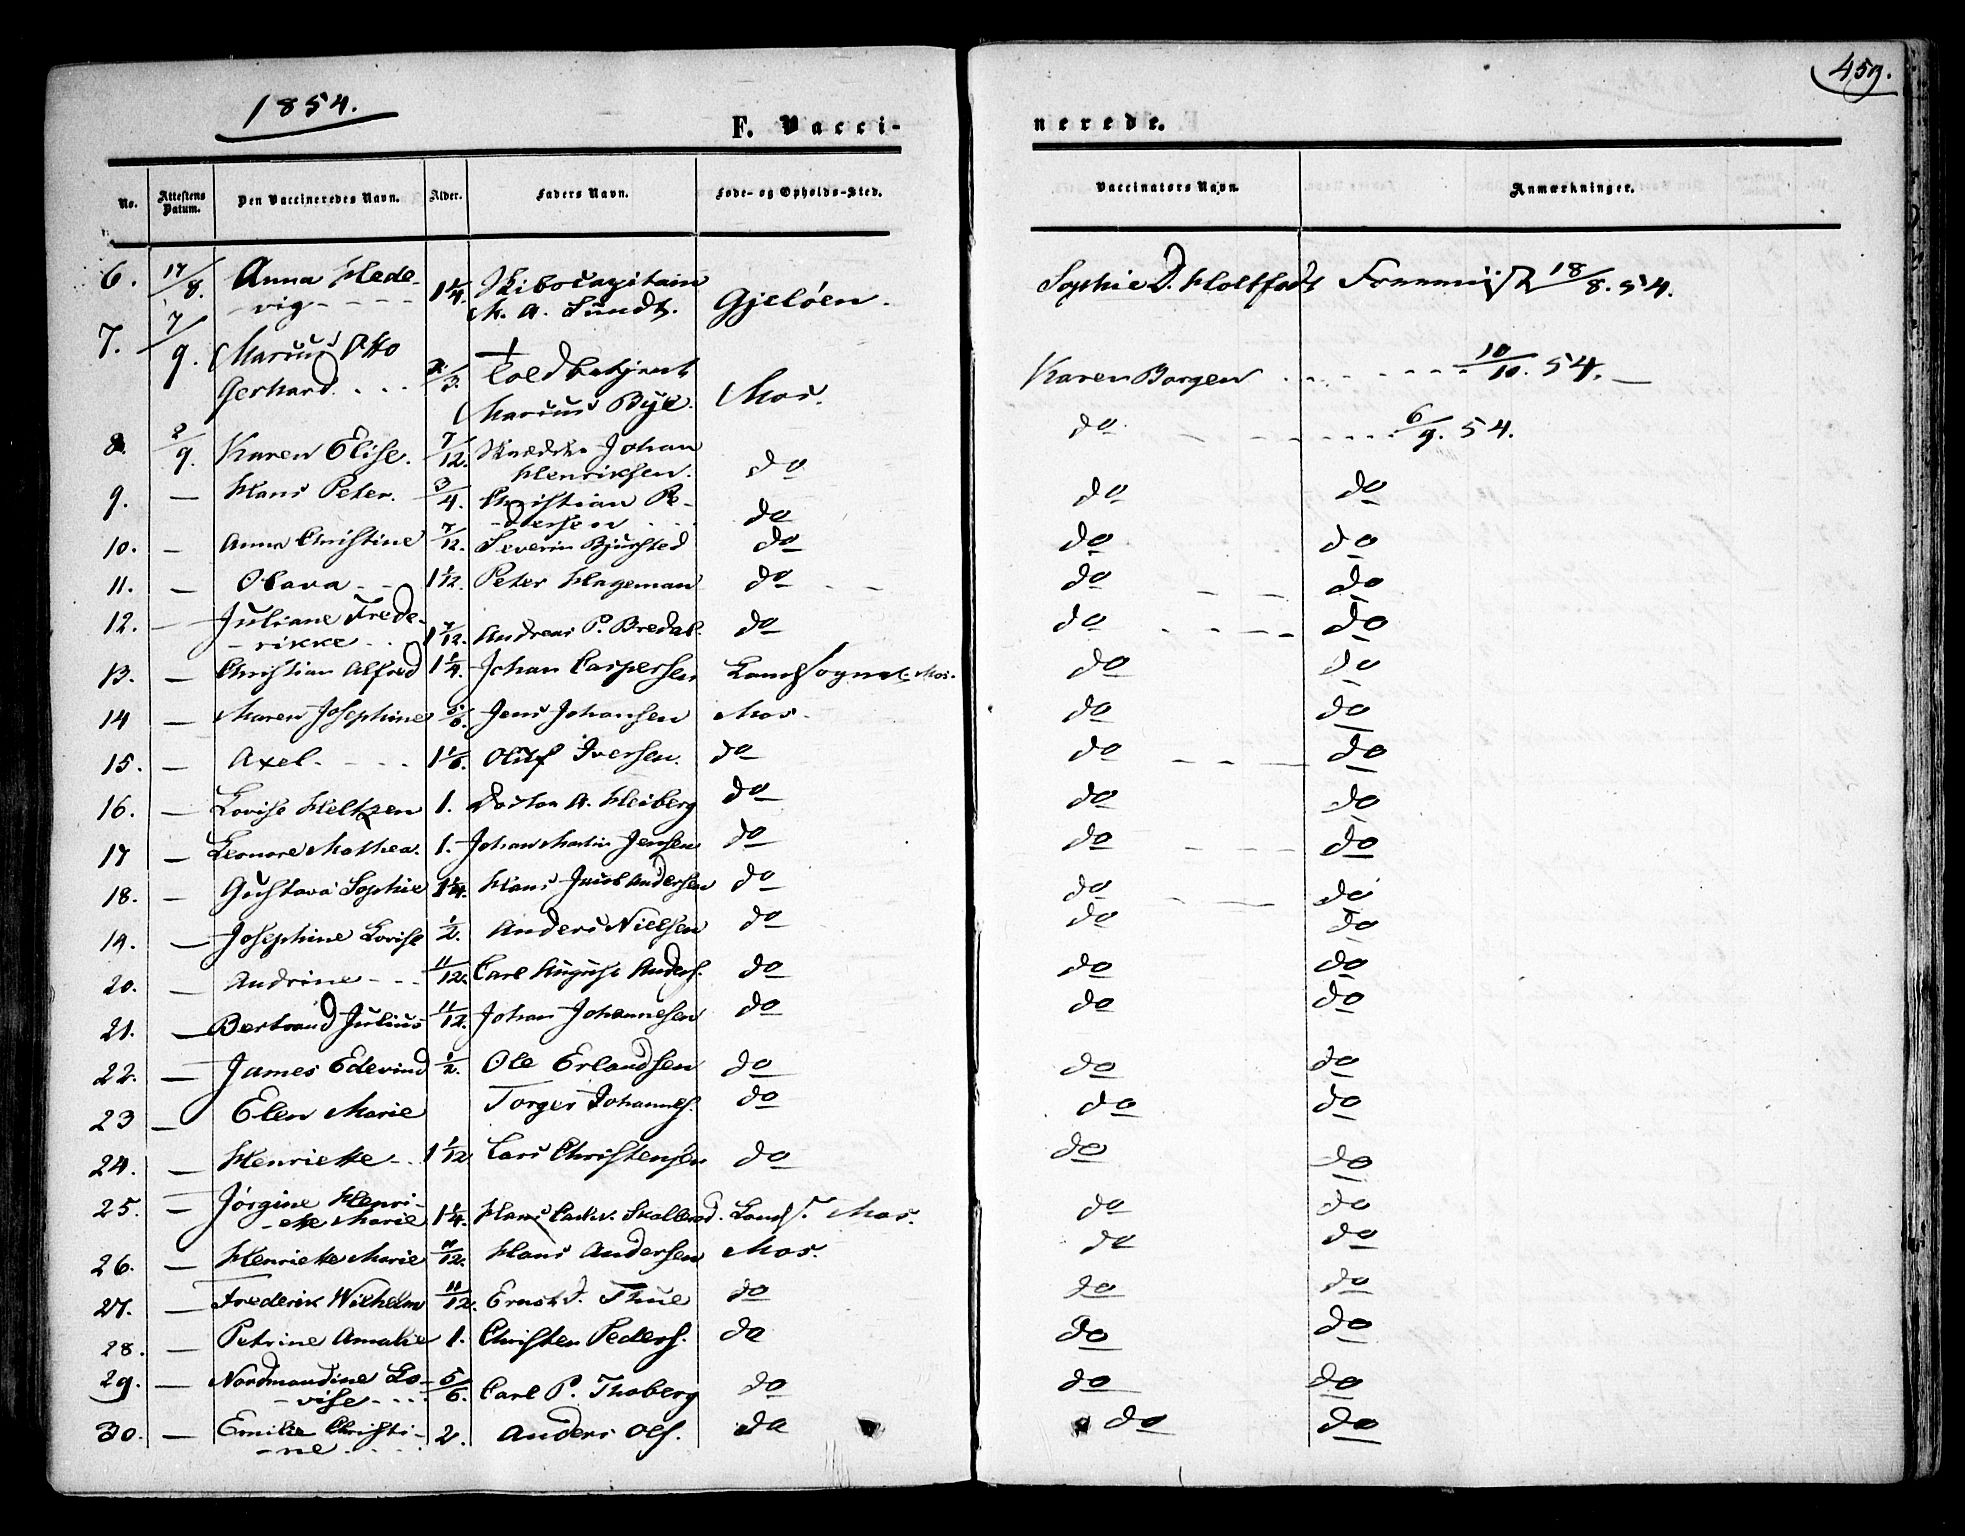 1854.
459.
F. Vacci-
nerede.
No. Attestens Datum. Den Vaccineredes Navn. Alder. Faders Navn. Føde- og Opholds-Sted. Vaccinators Navn. Anmærkninger.
6. 17/8. Anna Hede- Skibscapitain Sophie D. 18/8. 54.
- vig - - - - 1 1/4. M. A. Sundt. Gjelöen.
7. 7/9. Marius Otto
Gerhard. . . . 2/3. Toldbetjent Karen Borgen . . . . 10/10. 54. -
Marius Bye. Mos.
8. 2/9. Karen Elise. 7/12. Johan do . . . . 6/9. 54.
Henriksen. do
9. - Hans Peter. 3/4. Christian Pe- do do
- dersen . . . do
10. - Anna Christine 7/12. Severin Bjursted do do do
11. - Olava - - 1 1/12. Peter Hageman do do do
12. - Juliane Frede-
- rikke . . 1 7/12. Andreas P. Bredal. do do do
13. - Christian Alfred 1 1/4. Johan Caspersen Landsognet. Mos. do do
14 - Maren Josephine 5/6. Jens Johansen Mos. do do
15. - Axel. - - - 1 1/6. Oluf Iversen. do do do
16. - Lovise Heltzen 1. Doctor A. Heiberg do do do
17 - Leonore Mathea. 1. Johan Martin Jensen do do do
18. - Gustava Sophie 1 1/4. Hans Jacob Andersen do do do
19. - Josephine Lovise 1/2. Anders Nielsen do do do
20. - Andrine - - - 11/12. Carl August Anders. do do do
21. - Bertrand Julius 11/12. Johan Johannesen do do do
22. - James Edevind 1/2. Ole Erlandsen do do do
23 - Elen Marie Torger Johannes. do do do
24. - Henriette - . 1 1/12 Lars Christensen do do do
25. - Jörgine Henri-
- ette Marie 1 1/4. Hans Skallerud. Lands. Mos. do do
26. - Henriette Marie 7/12. Hans Andersen Mos. do do
27. - Frederik Wilhelm 11/12. Ernst J. Thue do do do
28. - Petrine Amalie 1. Christen Peders. do do do
29. - Nordmandine Lo-
- vise - . . . 5/6. Carl P. Thoberg do do do
30. - Emilie Christi-
- ne . . . . 2. Anders Ols. do do do